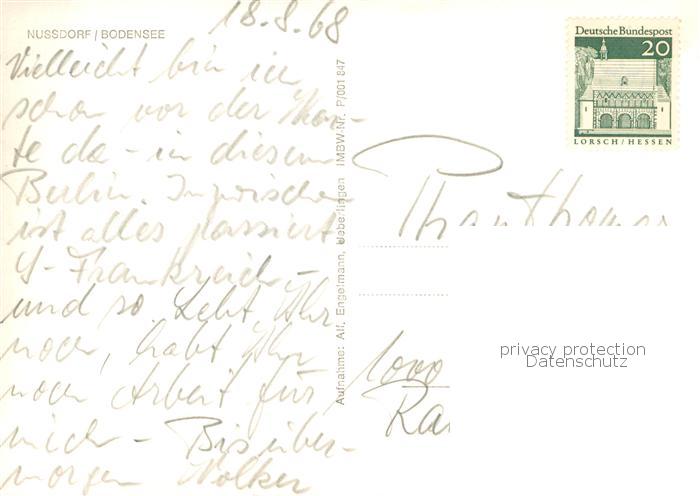 NUSSDORF / BODENSEE
18.8.68
Vielleicht bin ich
schon vor der Kar-
te da - in diesem
Berlin. Inzwischen
ist alles passiert
- Frankreich -
und so. Lebt Ihr
noch, habt Ihr
noch Arbeit für
mich - Bis über-
morgen Volker
Aufnahme: Alf. Engelmann, Ueberlingen IMBW-Nr. P/001 847
Deutsche Bundespost
20
LORSCH / HESSEN
Thomas
1000
privacy protection
Datenschutz